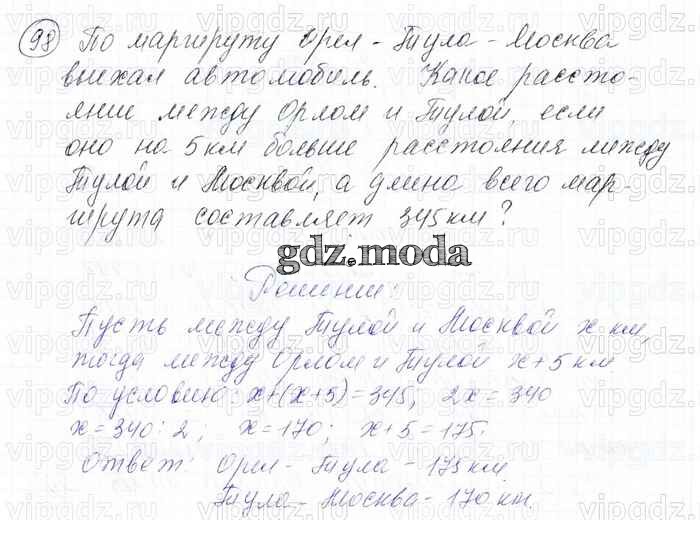 98 По маршруту Орел - Тула - Москва
выехал автомобиль. Какое рассто-
яние между Орлом и Тулой, если
оно на 5 км больше расстояния между
Тулой и Москвой, а длина всего мар-
шрута составляет 345 км?
gdz.moda
Решение:
Пусть между Тулой и Москвой x км,
тогда между Орлом и Тулой x+5 км
По условию: x+(x+5)=345, 2x = 340
x = 340 : 2; x = 170; x+5 = 175.
Ответ: Орел - Тула - 175 км.
Тула - Москва - 170 км.